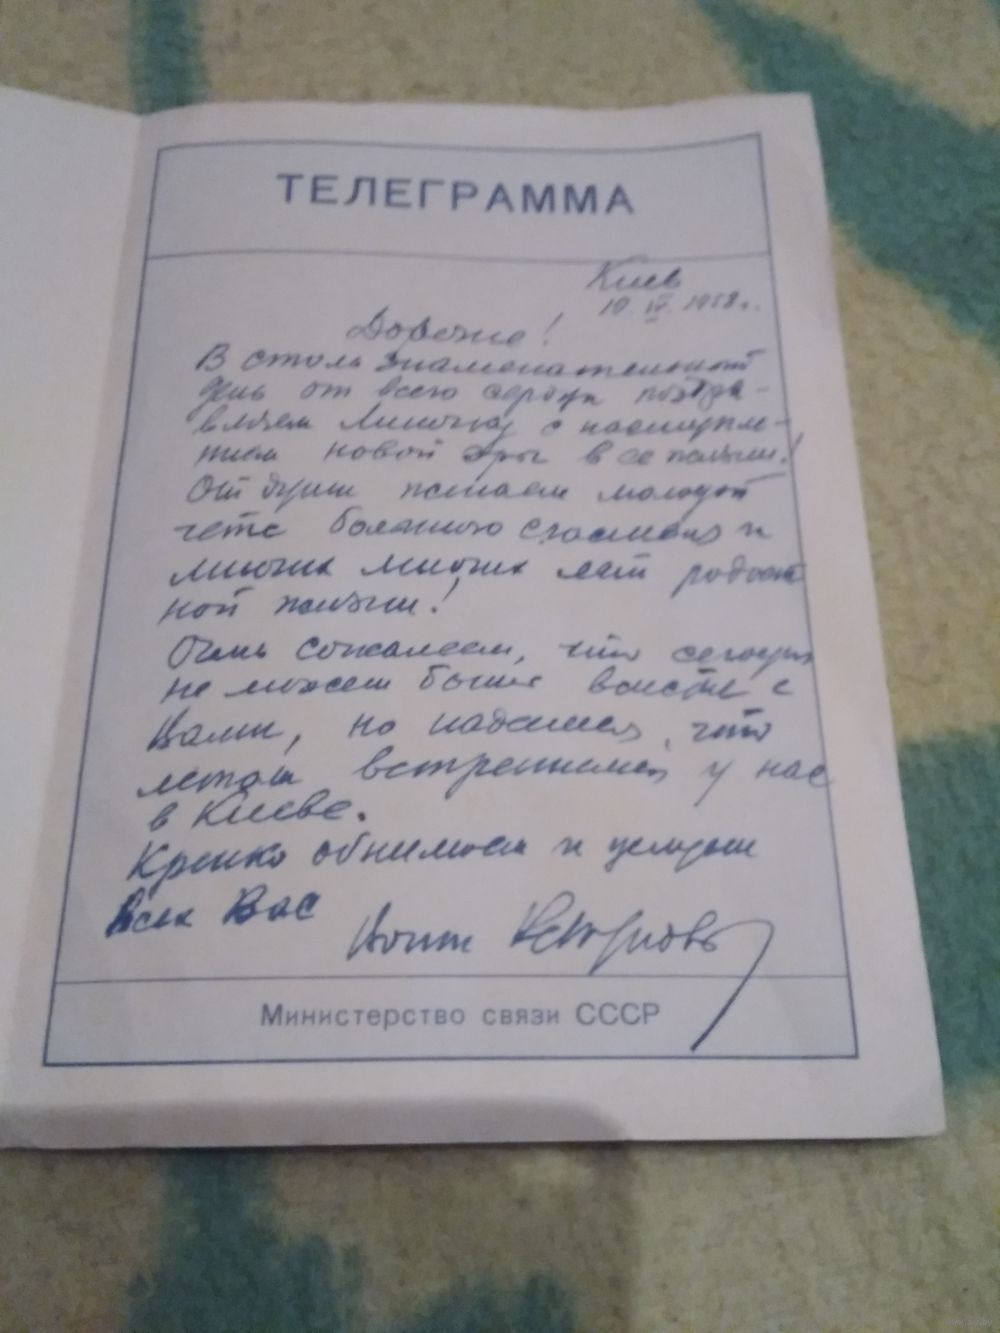 ТЕЛЕГРАММА
Киев
19. IV. 1958 г.
Дорогие!
В столь знаменательный
день от всего сердца поздра-
вляем Линочку с наступле-
нием новой эры в ее жизни!
От души желаем молодой
чете большого счастья и
многих многих лет радост
ной жизни!
Очень сожалеем, что сегодня
не можем быть вместе с
Вами, но надеемся, что
летом встретимся у нас
в Киеве.
Крепко обнимаем и целуем
Всех Вас
Министерство связи СССР